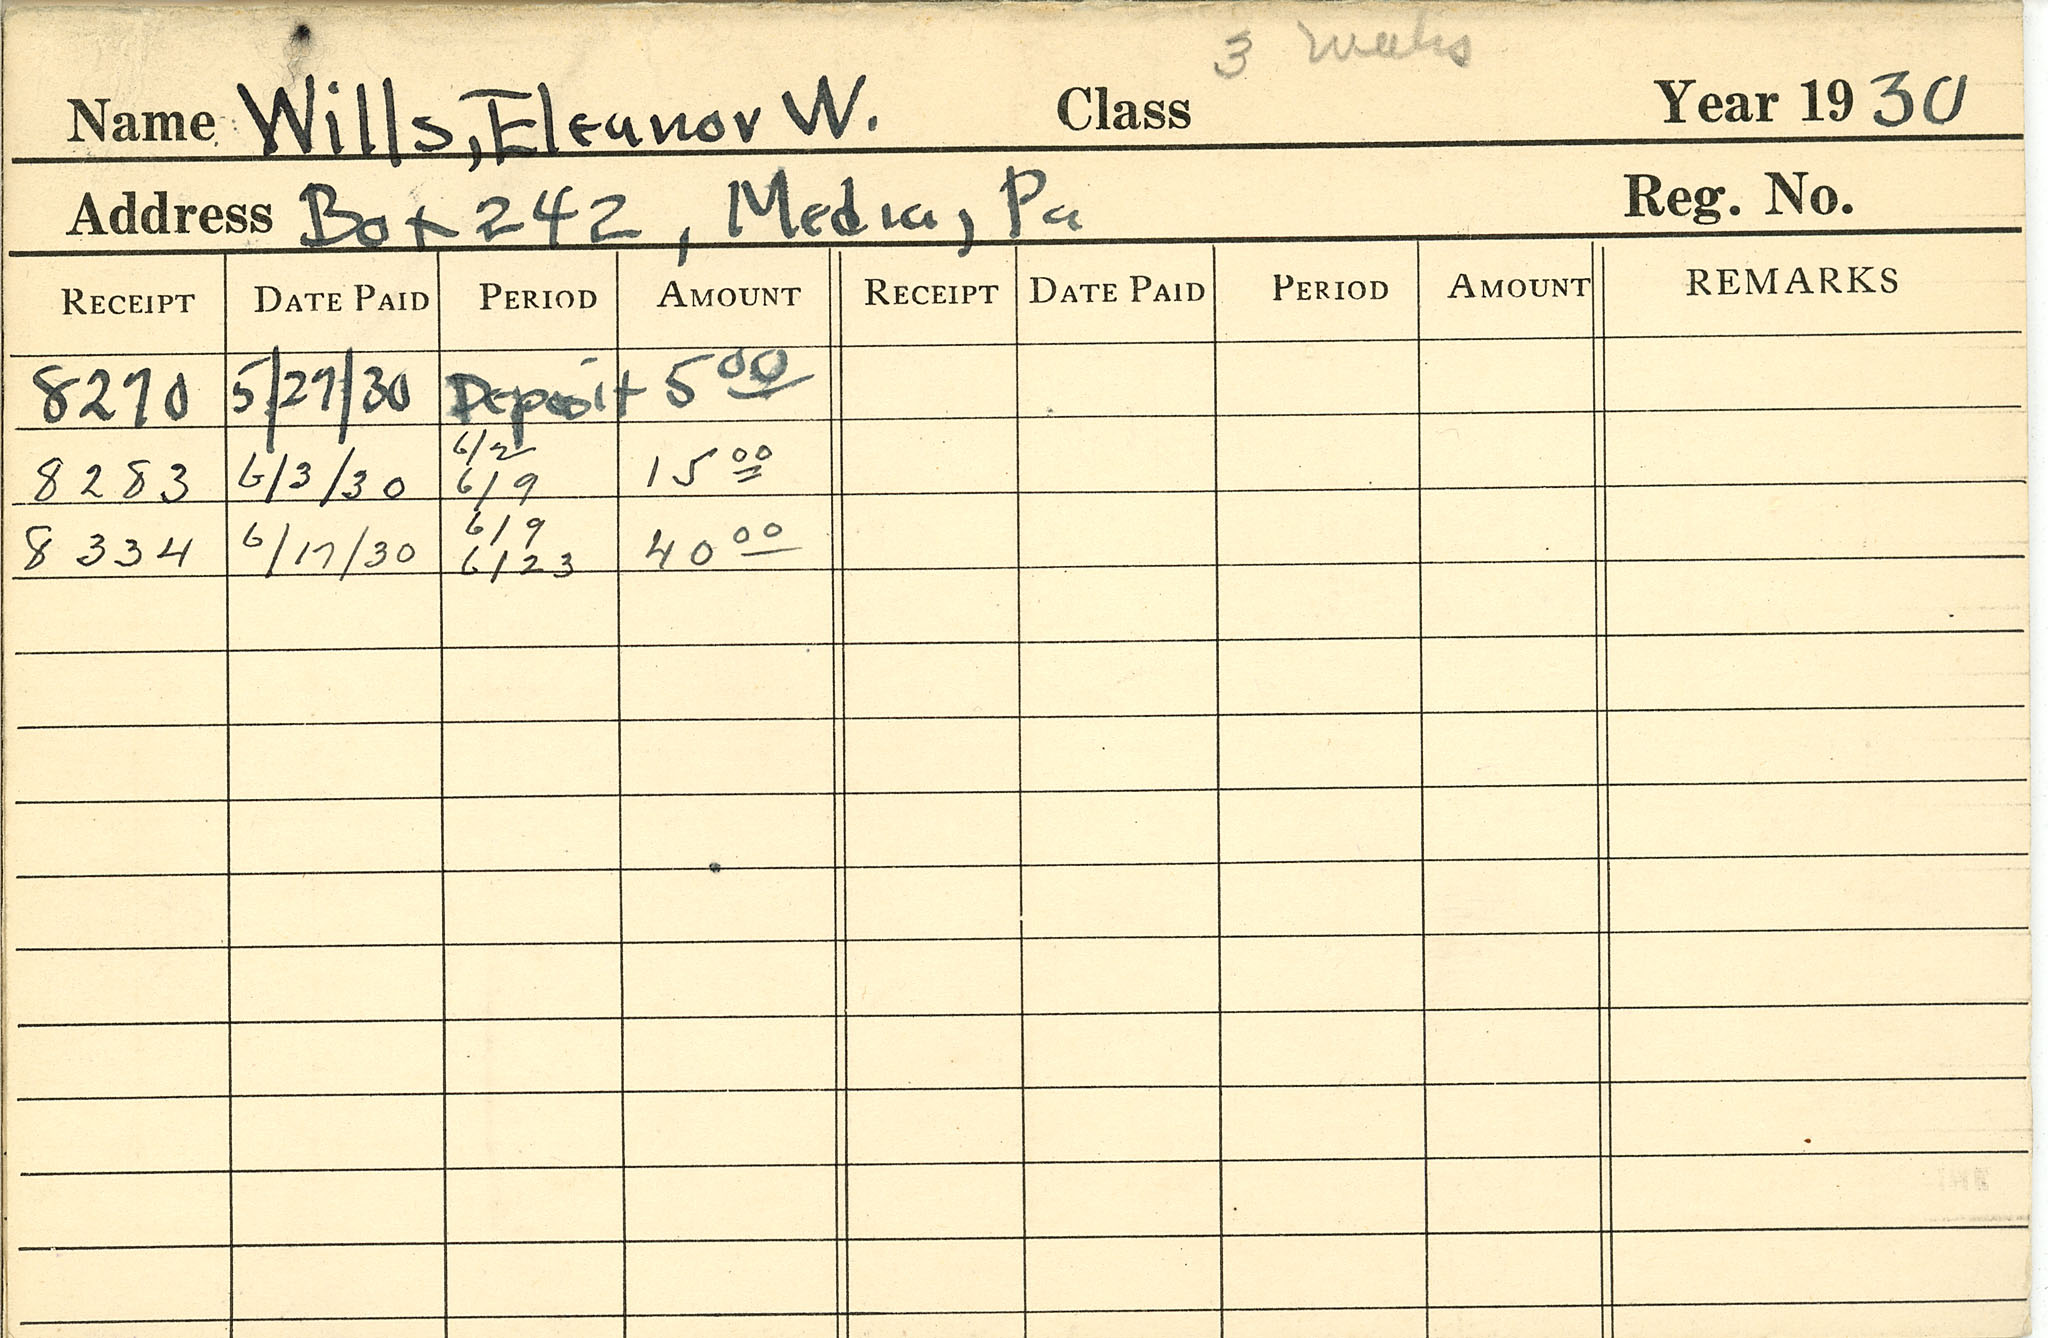 3 weeks
Name Wills, Eleanor W. Class Year 1930
Address Box 242, Media, Pa Reg. No.
RECEIPT DATE PAID PERIOD AMOUNT RECEIPT DATE PAID PERIOD AMOUNT REMARKS
8270 5/27/30 Deposit 5 00
6/2
8283 6/3/30 6/9 15 00
6/9
8334 6/17/30 6/23 40 00